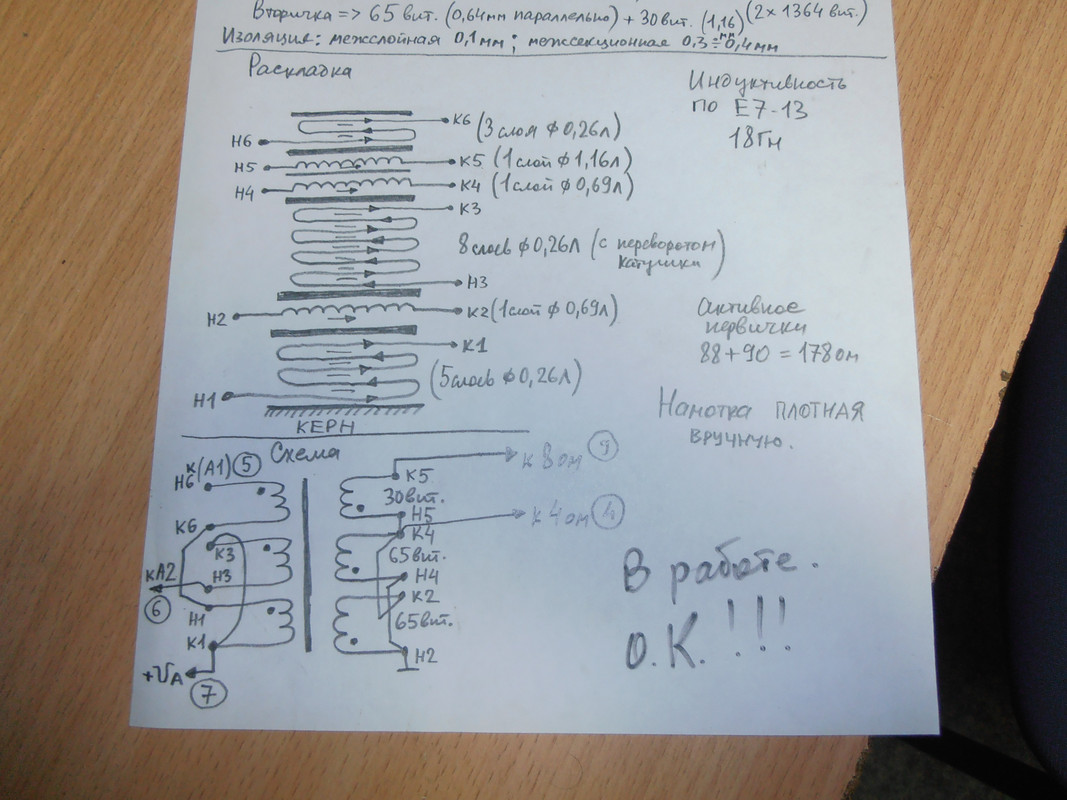 Вторичка => 65 вит. (0,64мм параллельно) + 30 вит. (1,16мм) (2×1364 вит.)
Изоляция: межслойная 0,1мм; межсекционная 0,3÷0,4мм
Раскладка
Индуктивность
по Е7-13
18Гн
К6 (3 слоя ф0,26л)
Н6
Н5 К5 (1 слой ф1,16л)
Н4 К4 (1 слой ф0,69л)
К3
8 слоёв ф0,26л (с переворотом катушки)
Н3
Н2 К2 (1 слой ф0,69л)
К1
(5 слоёв ф0,26л)
Н1
КЕРН
Активное
первички
88+90=178 ом
Намотка ПЛОТНАЯ
вручную.
Схема
к(А1) 5
Н6
К6
К3
Н3
кА2
6
Н1
К1
+UА
7
К5 к 8 ом 9
30 вит.
Н5
К4 к 4 ом
65 вит.
Н4
К2
65 вит.
Н2
В работе.
О.К.!!!